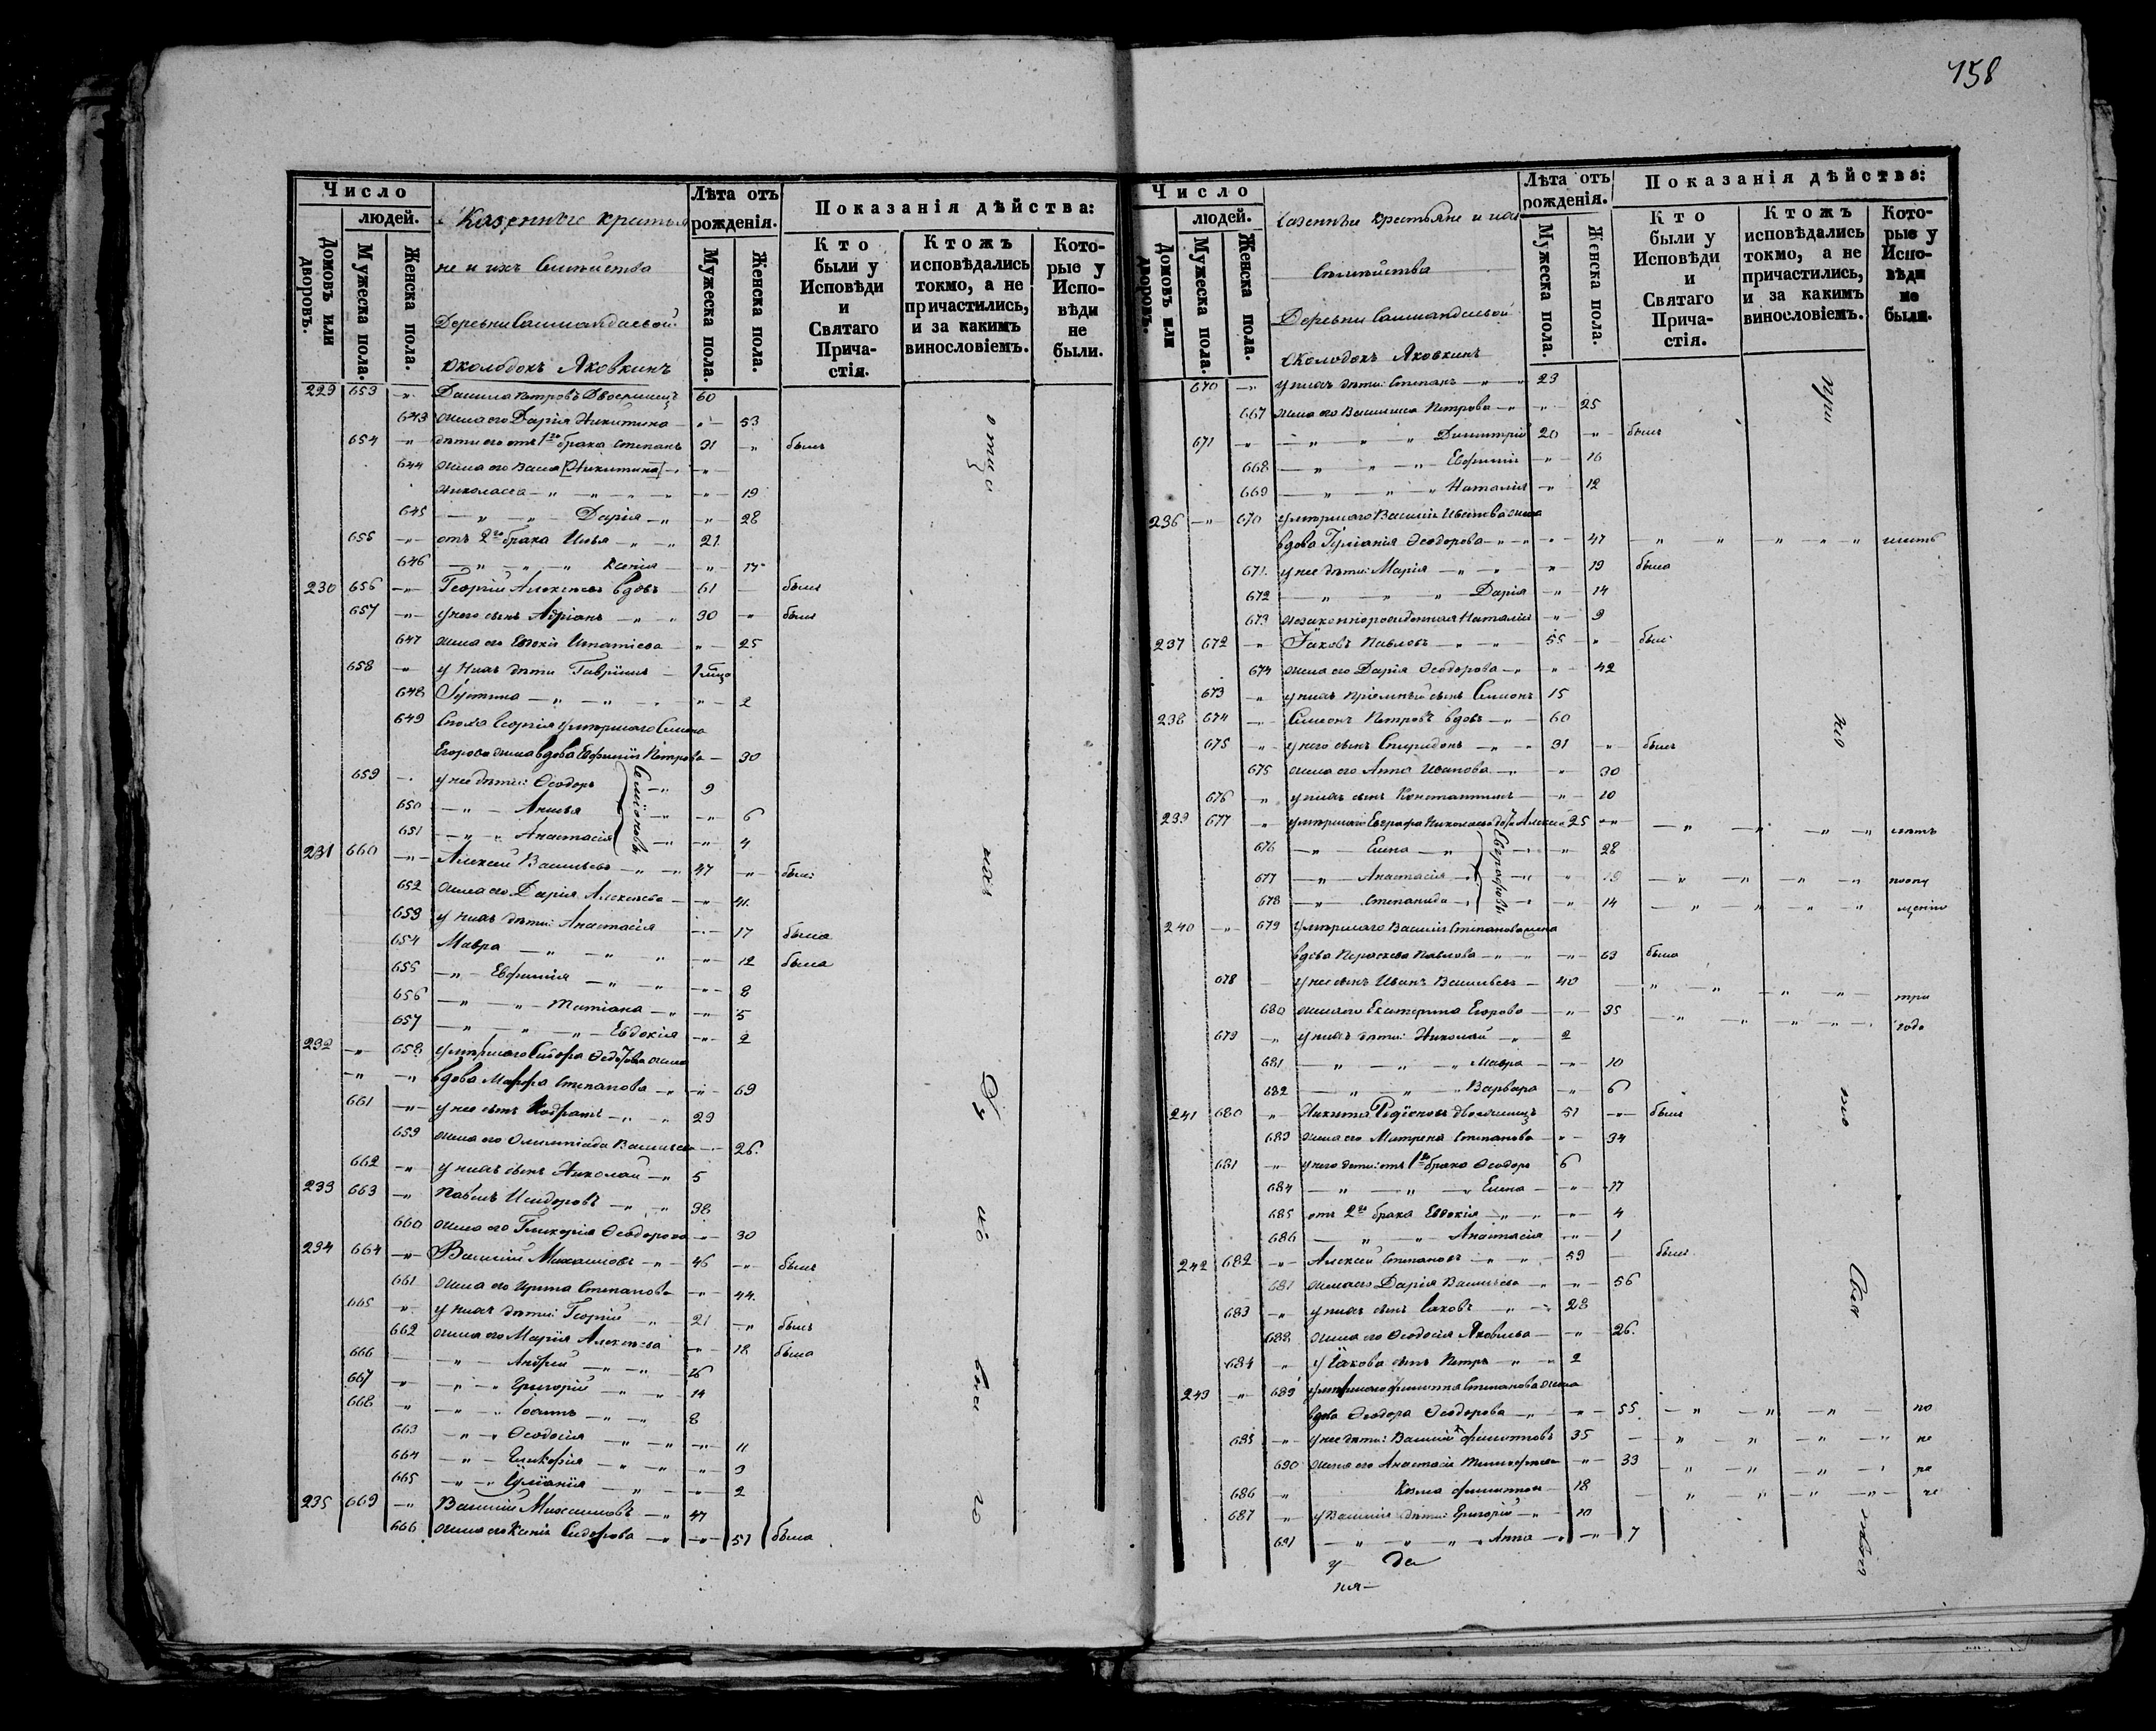 158
Число
людей.
Домовъ или дворовъ.
Мужеска пола.
Женска пола.
Казенные крестья
не и ихъ Семейства
Деревни
околодокъ Яковкинъ
Лѣта отъ рожденія.
Мужеска пола.
Женска пола.
Показанія дѣйства:
Кто были у Исповѣди и Святаго Причастія.
Ктожъ исповѣдались токмо, а не причастились, и за какимъ винословіемъ.
Которые у Исповѣди не были.
229 653 -„- Данила Петровъ Двоеженецъ 60
643 жена его Дарія Никитина -„- 53
654 -„- дѣти его отъ 1го брака Степанъ 31 -„- былъ
644 жена его [Никитина] -„-
Николаева -„- 19
645 -„- Дарія -„- 28
655 -„- отъ 2го брака Илья -„- 21
646 -„- Ксенія -„- 17
230 656 -„- Георгій Алексеевъ вдовъ 61 былъ
657 -„- у него сынъ Адріанъ 30 -„- былъ
647 жена его Евдокія Игнатіева -„- 25
658 -„- у нихъ дѣти Гавріилъ 1
648 Іустина -„- 2
649 Сноха Георгія умершаго Симеона
Егорова жена вдова Евфимія Петрова 30
659 -„- у нее дѣти: Ѳеодоръ 9
650 -„- Анисья -„- 6
651 -„- Анастасія -„- 4
Семіоновы
231 660 -„- Алексей Васильевъ 47 -„- былъ
652 жена его Дарія Алексеева -„- 41
653 у нихъ дѣти: Анастасія -„- 17 была
654 Мавра -„- 12 была
655 -„- Евфимія -„- 8
656 -„- Татіана -„- 5
657 -„- Евдокія -„- 2
232 -„- 658 умершаго Сидора Ѳедорова жена
-„- -„- вдова Марѳа Степанова -„- 69
661 -„- у нее сынъ Кодратъ 29
659 жена его Олимпіада Васильева 26
662 -„- у нихъ сынъ Николай 5
233 663 -„- Павелъ Исидоровъ 38
660 жена его Гликерія Ѳеодорова 30
234 664 -„- Василій Михаиловъ 46 -„- былъ
661 жена его Ирина Степанова -„- 44
665 -„- у нихъ дѣти: Георгій 21 -„- былъ
662 жена его Марія Алексеева -„- 18 была
666 -„- Андрей 16
667 -„- Григорій 14
668 -„- Іоаннъ 8
663 -„- Ѳеодосія -„- 11
664 -„- Гликерія -„- 3
665 -„- Іуліанія -„- 2
235 669 -„- Василій Михаиловъ 47
666 жена его Ксенія Сидорова -„- 51 была
Число
людей.
Домовъ или дворовъ.
Мужеска пола.
Женска пола.
Казенные крестьяне и ихъ
Семейства
Деревни
околодокъ Яковкинъ
Лѣта отъ рожденія.
Мужеска пола.
Женска пола.
Показанія дѣйства:
Кто были у Исповѣди и Святаго Причастія.
Ктожъ исповѣдались токмо, а не причастились, и за какимъ винословіемъ.
Которые у Исповѣди не были.
670 -„- у нихъ дѣти: Степанъ 23
667 жена его Василиса Петрова -„- 25
671 -„- Димитрій 20 -„- былъ
668 -„- Евфимія -„- 16
669 -„- Наталія -„- 12
236 -„- 670 умершаго Василія Иванова жена
вдова Іуліанія Ѳеодорова -„- 47
671 у нее дѣти: Марія -„- 19 была
672 -„- Дарія -„- 14
673 незаконнорожденная Наталія -„- 9
237 672 -„- Іаковъ Павловъ 55 -„- былъ
674 жена его Дарія Ѳеодорова -„- 42
673 -„- у нихъ пріемный сынъ Симеонъ 15
238 674 -„- Симеонъ Петровъ вдовъ 60
675 -„- у него сынъ Спиридонъ 31 -„- былъ
675 жена его Анна Иванова -„- 30
676 -„- у нихъ сынъ Константинъ -„- 10
239 677 -„- умершаго Евграфа Николаева дѣти Алексей 25
676 -„- Елена -„- 28
677 -„- Анастасія -„- 19
678 -„- Степанида -„- 14
Евграфовы
240 -„- 679 умершаго Василія Степанова жена
вдова Параскева Павлова -„- 63 была
678 у нее сынъ Иванъ Васильевъ 40 три
680 жена его Екатерина Егорова -„- 35 года
679 -„- у нихъ дѣти: Николай 2
681 -„- Мавра -„- 10
682 -„- Варвара -„- 6
241 680 -„- Никита Родіоновъ двоеженецъ 51 -„- былъ
683 жена его Матрена Степанова -„- 34
681 -„- у него дѣти: отъ 1го брака Ѳеодоръ 6
684 -„- Елена -„- 17
685 отъ 2го брака Евдокія -„- 4
686 -„- Анастасія -„- 1
242 682 -„- Алексей Степановъ 59 былъ
687 жена его Дарія Васильева -„- 56
683 -„- у нихъ сынъ Іаковъ 28
688 жена его Ѳеодосія Яковлева -„- 26
684 -„- у Іакова сынъ Петръ 2
243 -„- 689 умершаго Филиппа Степанова жена
вдова Ѳеодора Ѳеодорова -„- 55
685 -„- у нее дѣти: Василій Филипповъ 35
690 жена его Анастасія -„- 33
686 -„- Козма Филипповъ 18
687 -„- у Василія дѣти: Григорій 10
691 -„- Анна -„- 7